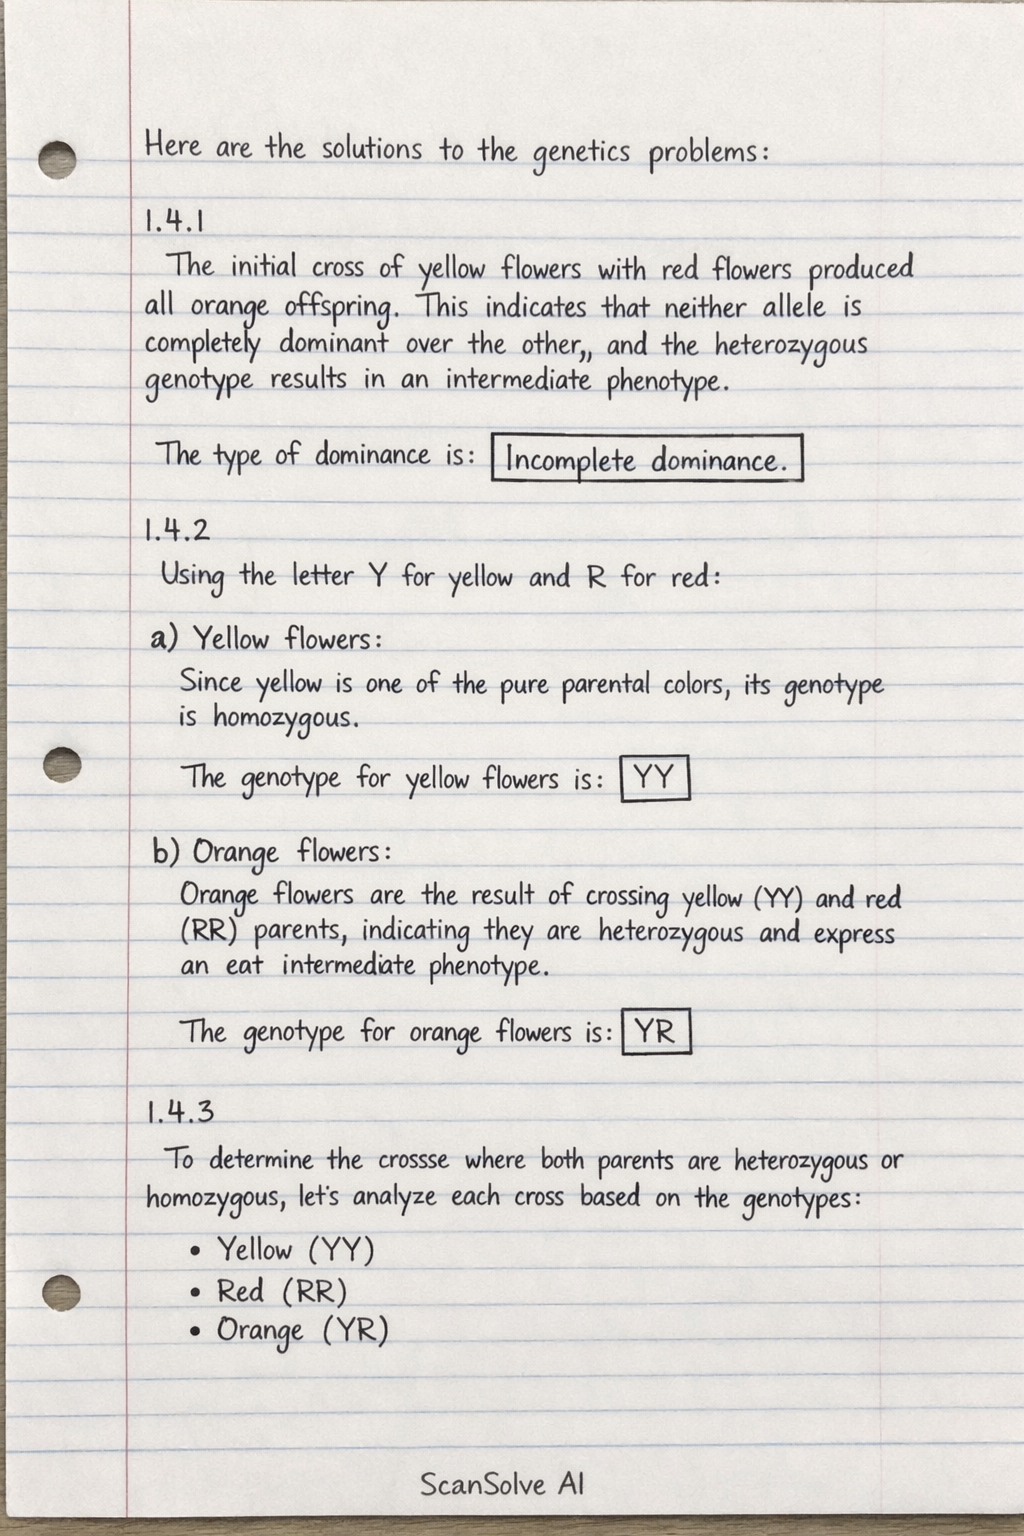 Here are the solutions to the genetics problems:
1.4.1
The initial cross of yellow flowers with red flowers produced
all orange offspring. This indicates that neither allele is
completely dominant over the other,, and the heterozygous
genotype results in an intermediate phenotype.
The type of dominance is: Incomplete dominance.
1.4.2
Using the letter Y for yellow and R for red:
a) Yellow flowers:
Since yellow is one of the pure parental colors, its genotype
is homozygous.
The genotype for yellow flowers is: YY
b) Orange flowers:
Orange flowers are the result of crossing yellow (YY) and red
(RR) parents, indicating they are heterozygous and express
an eat intermediate phenotype.
The genotype for orange flowers is: YR
1.4.3
To determine the crossse where both parents are heterozygous or
homozygous, let's analyze each cross based on the genotypes:
• Yellow (YY)
• Red (RR)
• Orange (YR)
ScanSolve AI